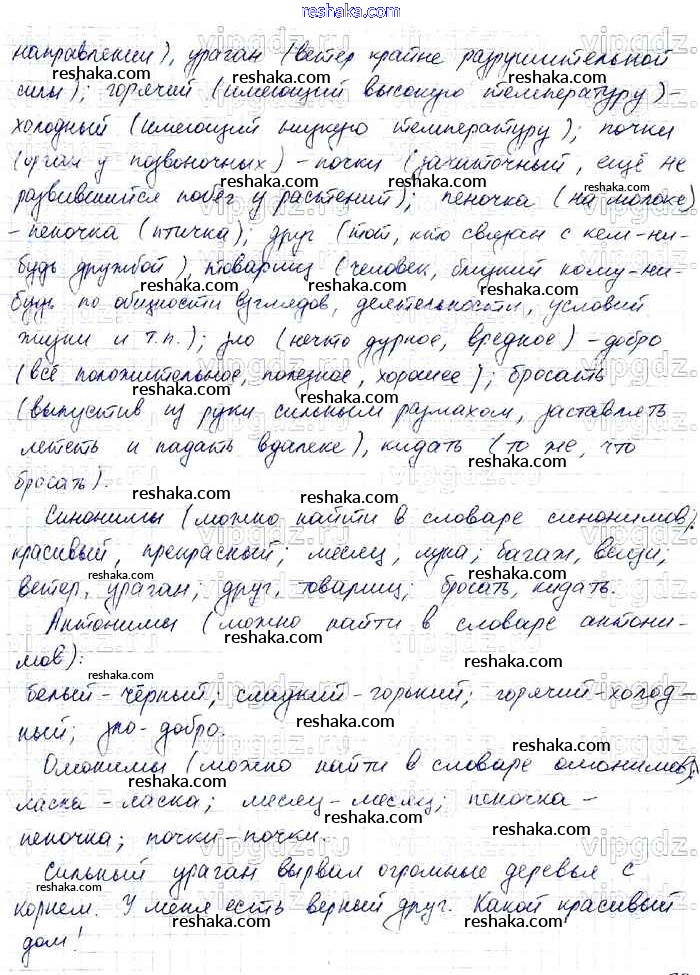 reshaka.com
направлении), ураган (ветер крайне разрушительной
силы); горячий (имеющий высокую температуру) -
холодный (имеющий низкую температуру); почки
(орган у позвоночных) - почки (зачаточный, ещё не
развившийся побег у растений); пеночка (на молоке)
- пеночка (птичка); друг (тот, кто связан с кем-ни-
будь дружбой), товарищ (человек, близкий кому-ни-
будь по общности взглядов, деятельности, условий
жизни и т.п.); зло (нечто дурное, вредное) - добро
(всё положительное, полезное, хорошее); бросать
(выпустив из руки сильным размахом, заставлять
лететь и падать вдалеке), кидать (то же, что
бросать).
Синонимы (можно найти в словаре синонимов):
красивый, прекрасный; месяц, луна; багаж, вещи;
ветер, ураган; друг, товарищ; бросать, кидать.
Антонимы (можно найти в словаре антони-
мов):
белый - чёрный; сладкий - горький; горячий - холод-
ный; зло - добро.
Омонимы (можно найти в словаре омонимов):
ласка - ласка; месяц - месяц; пеночка -
пеночка; почки - почки.
Сильный ураган вырвал огромные деревья с
корнем. У меня есть верный друг. Какой красивый
дом!